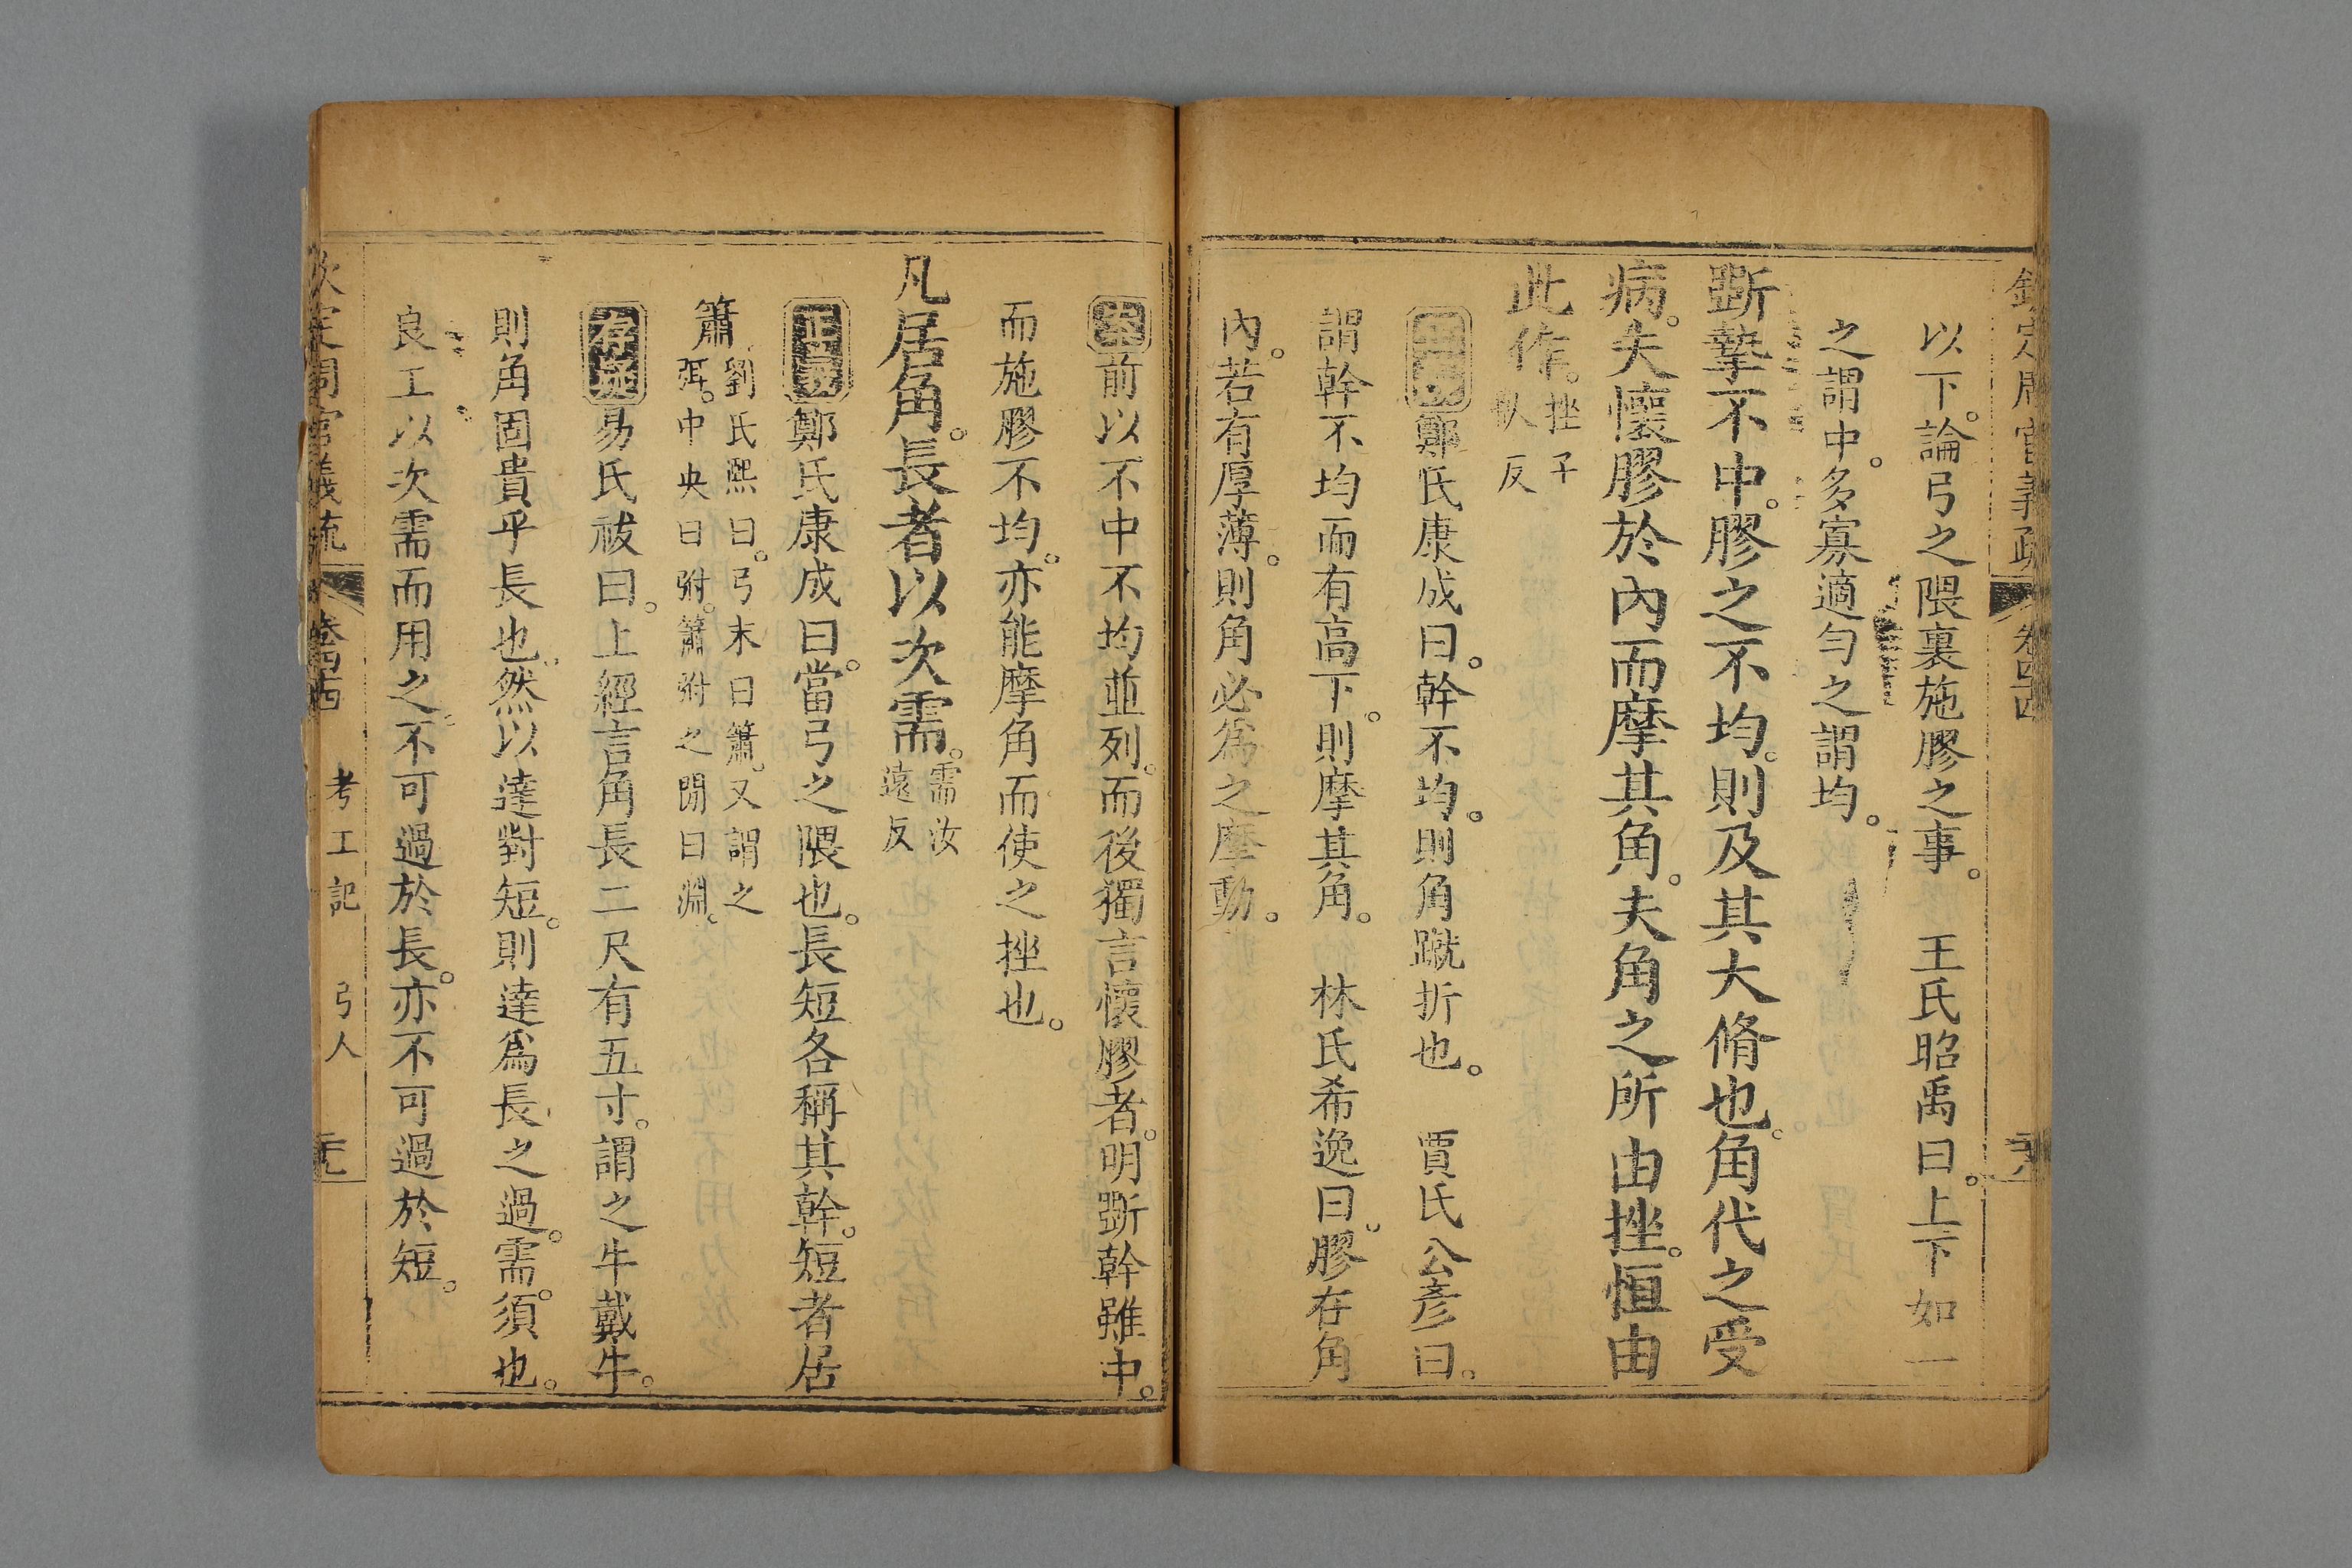 欽定周官義疏 卷四十四
以下。論弓之隈裏施膠之事。 王氏昭禹曰。上下如一
之謂中。多寡適勻之謂均。
斲摯不中。膠之不均。則及其大脩也。角代之受
病。夫懷膠於內而摩其角。夫角之所由挫。恒由
此作。挫子
㹜反
鄭氏康成曰。幹不均。則角蹴折也。 賈氏公彥曰。
謂幹不均而有高下。則摩其角。 林氏希逸曰。膠在角
內。若有厚薄。則角必為之摩動。
前以不中不均並列。而後獨言懷膠者。明斲幹雖中。
而施膠不均。亦能摩角而使之挫也。
凡居角。長者以次需。需汝
遠反
正義鄭氏康成曰。當弓之隈也。長短各稱其幹。短者居
簫。劉氏熙曰。弓末曰簫。又謂之
弭。中央曰弣。簫弣之閒曰淵。
存疑易氏祓曰。上經言角長二尺有五寸。謂之牛戴牛。
則角固貴乎長也。然以達對短。則達爲長之過。需。須也。
良工以次需而用之。不可過於長。亦不可過於短。
欽定周官義疏 卷四十四 考工記 弓人